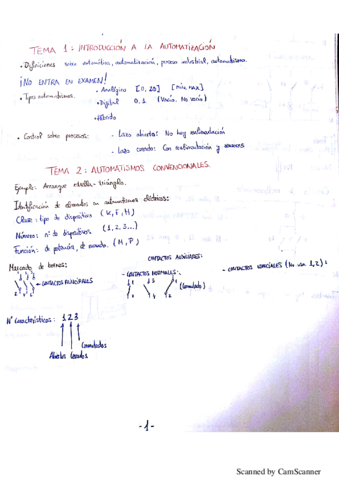 TEMA 1: INTRODUCCIÓN A LA AUTOMATIZACIÓN
• Definiciones sobre automática, automatización, proceso industrial, automatismo.
¡NO ENTRA EN EXAMEN!
• Tipos automatismos.
• Analógico [0, 20] [min, max]
• Digital 0, 1 (Varía. No varía)
• Híbrido
• Control sobre procesos:
Lazo abierto: No hay realimentación
Lazo cerrado: Con realimentación y sensores
TEMA 2: AUTOMATISMOS CONVENCIONALES.
Ejemplo: Arranque estrella-triángulo.
Identificación de elementos en automatismos eléctricos:
Clase: tipo de dispositivo (K, F, H)
Número: nº de dispositivos. (1, 2, 3...)
Función: de potencia, de mando. (M, P)
Marcado de bornes:
CONTACTOS PRINCIPALES
CONTACTOS AUXILIARES:
- CONTACTOS NORMALES:
(Conmutado)
- CONTACTOS ESPECIALES (No usa 1, 2):
Nº Característicos: 1 2 3
Abiertos Cerrados Conmutados
-1-
Scanned by CamScanner